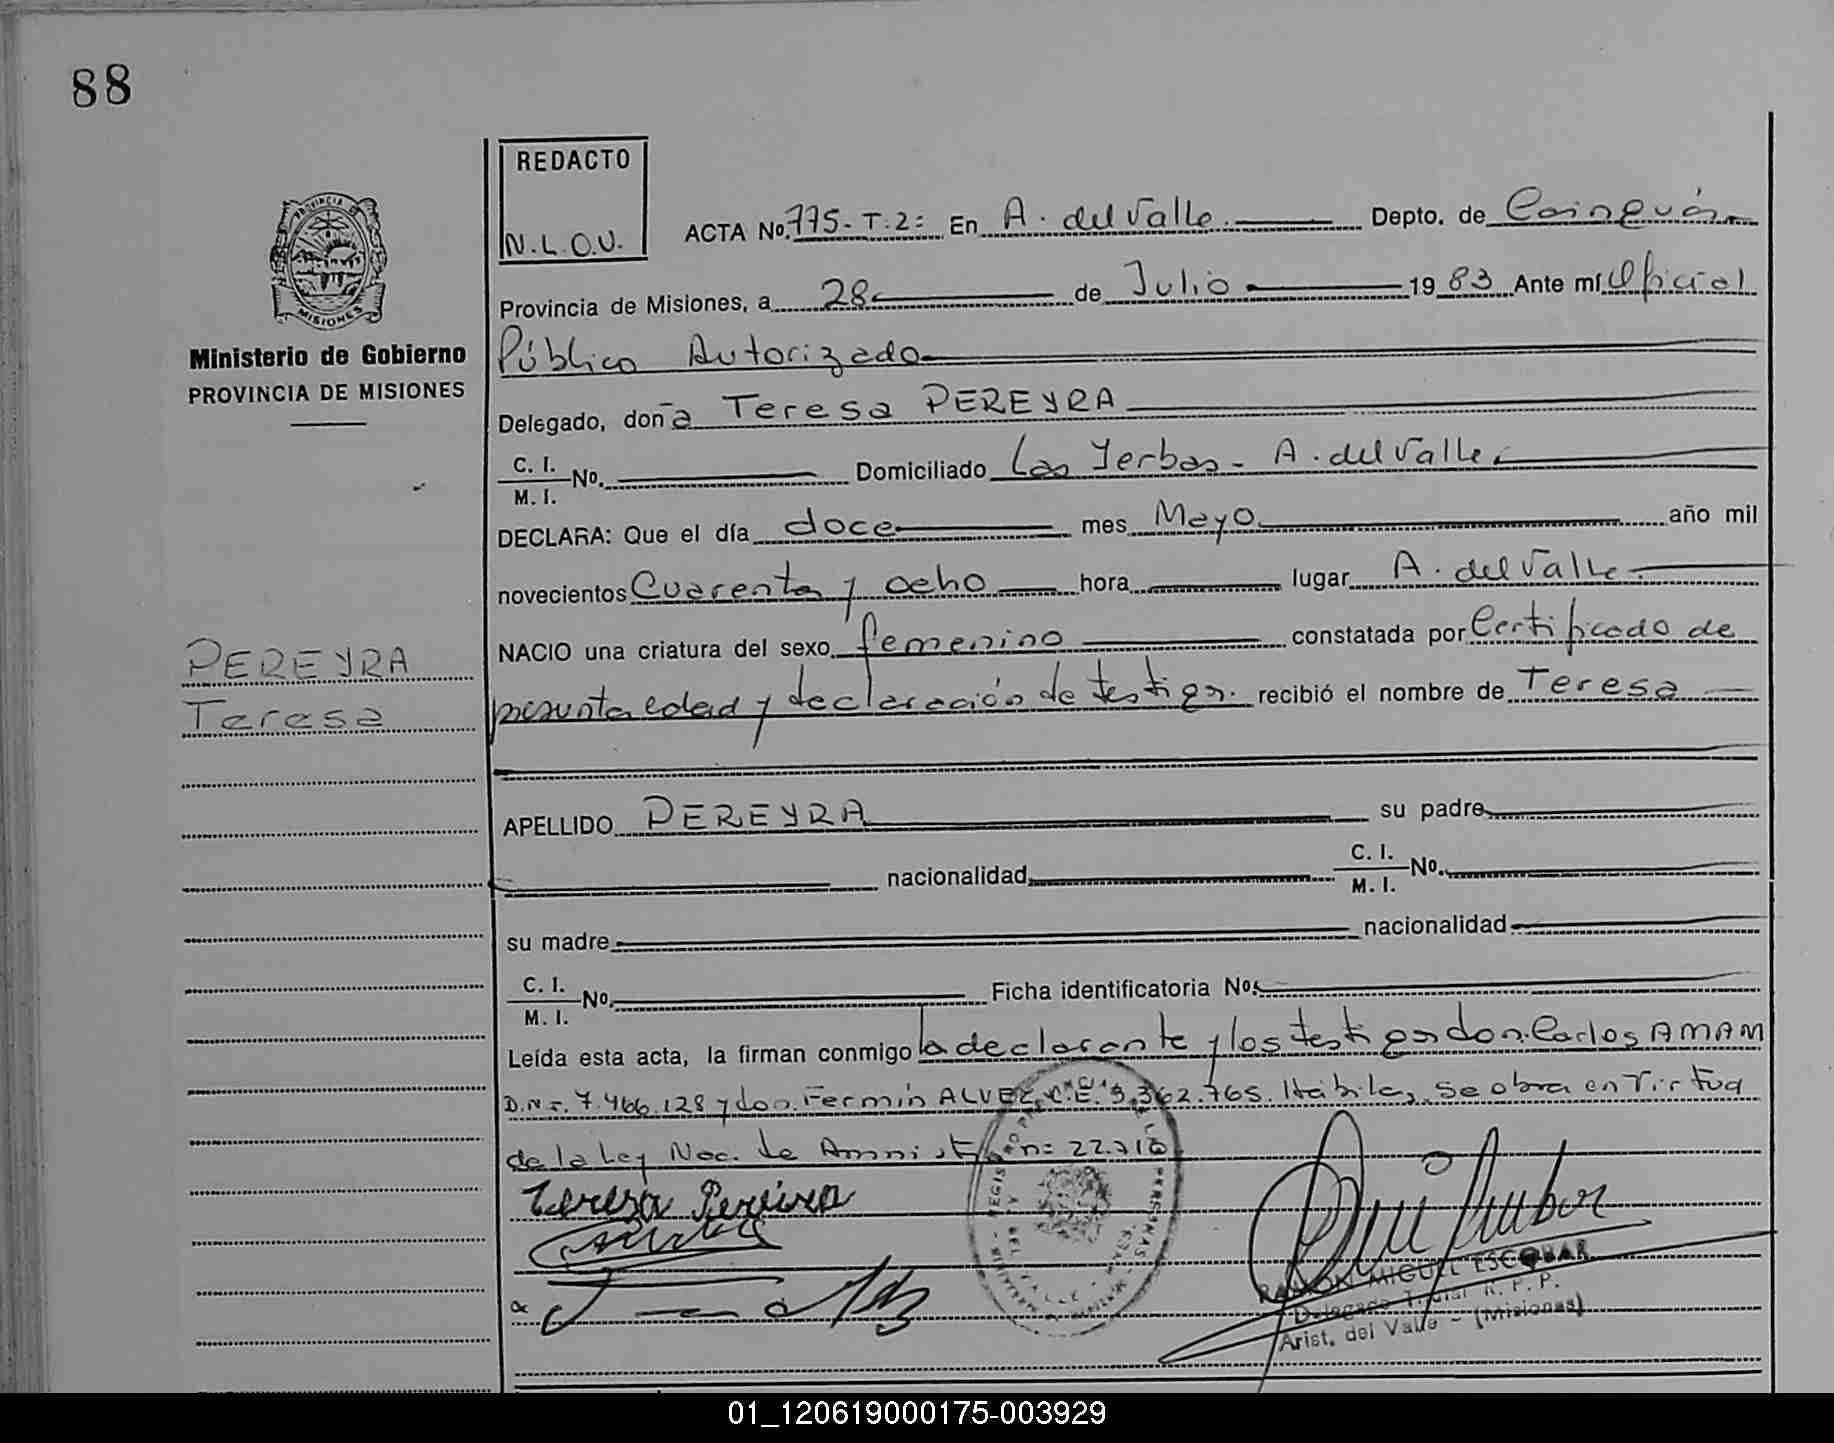 88
REDACTO
N.L.O.U.
ACTA No. 775- T. 2: En A. del Valle. Depto. de Cainguás.
Provincia de Misiones, a 28 de Julio 19 83 Ante mí Oficial
Público Autorizado
Delegado, don ña Teresa PEREYRA
C. I.
M. I. No. Domiciliado Las Yerbas - A. del Valle.
DECLARA: Que el día doce mes Mayo año mil
novecientos Cuarenta y ocho hora lugar A. del Valle.
NACIO una criatura del sexo femenino constatada por Certificado de
presunta edad y declaración de testigos. recibió el nombre de Teresa
APELLIDO PEREYRA su padre
nacionalidad C. I.
M. I. No.
su madre nacionalidad
C. I.
M. I. No. Ficha identificatoria No.
Leída esta acta, la firman conmigo la declarante y los testigos don Carlos AMAM
D.N.I. 7.466.128 y don. Fermín ALVEZ, C.E. 3.362.765. Hábiles, se obra en Virtud
de la Ley Nac. de Amnistía n: 22.710
Teresa Pereira
RAMON MIGUEL ESCOBAR
Delegado Titular R. P. P.
Arist. del Valle - (Misiones)
PROVINCIA DE
MISIONES
Ministerio de Gobierno
PROVINCIA DE MISIONES
PEREYRA
Teresa
01_120619000175-003929